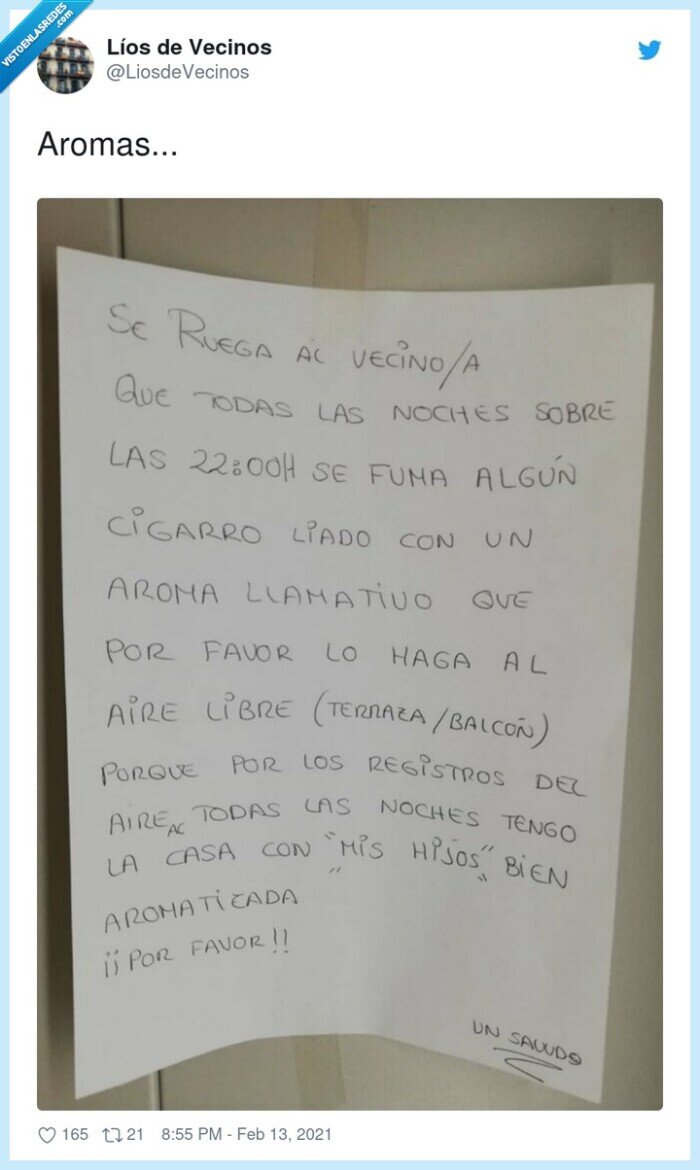 VISTOENLASREDES
.com
Líos de Vecinos
@LiosdeVecinos
Aromas...
SE RUEGA AL VECINO/A
QUE TODAS LAS NOCHES SOBRE
LAS 22:00H SE FUMA ALGÚN
CIGARRO LIADO CON UN
AROMA LLAMATIVO QUE
POR FAVOR LO HAGA AL
AIRE LIBRE (TERRAZA/BALCOÑ)
PORQUE POR LOS REGISTROS DEL
AIRE AC TODAS LAS NOCHES TENGO
LA CASA CON "MIS HIJOS" BIEN
AROMATIZADA
¡¡POR FAVOR!!
UN SALUDO
165 21 8:55 PM - Feb 13, 2021